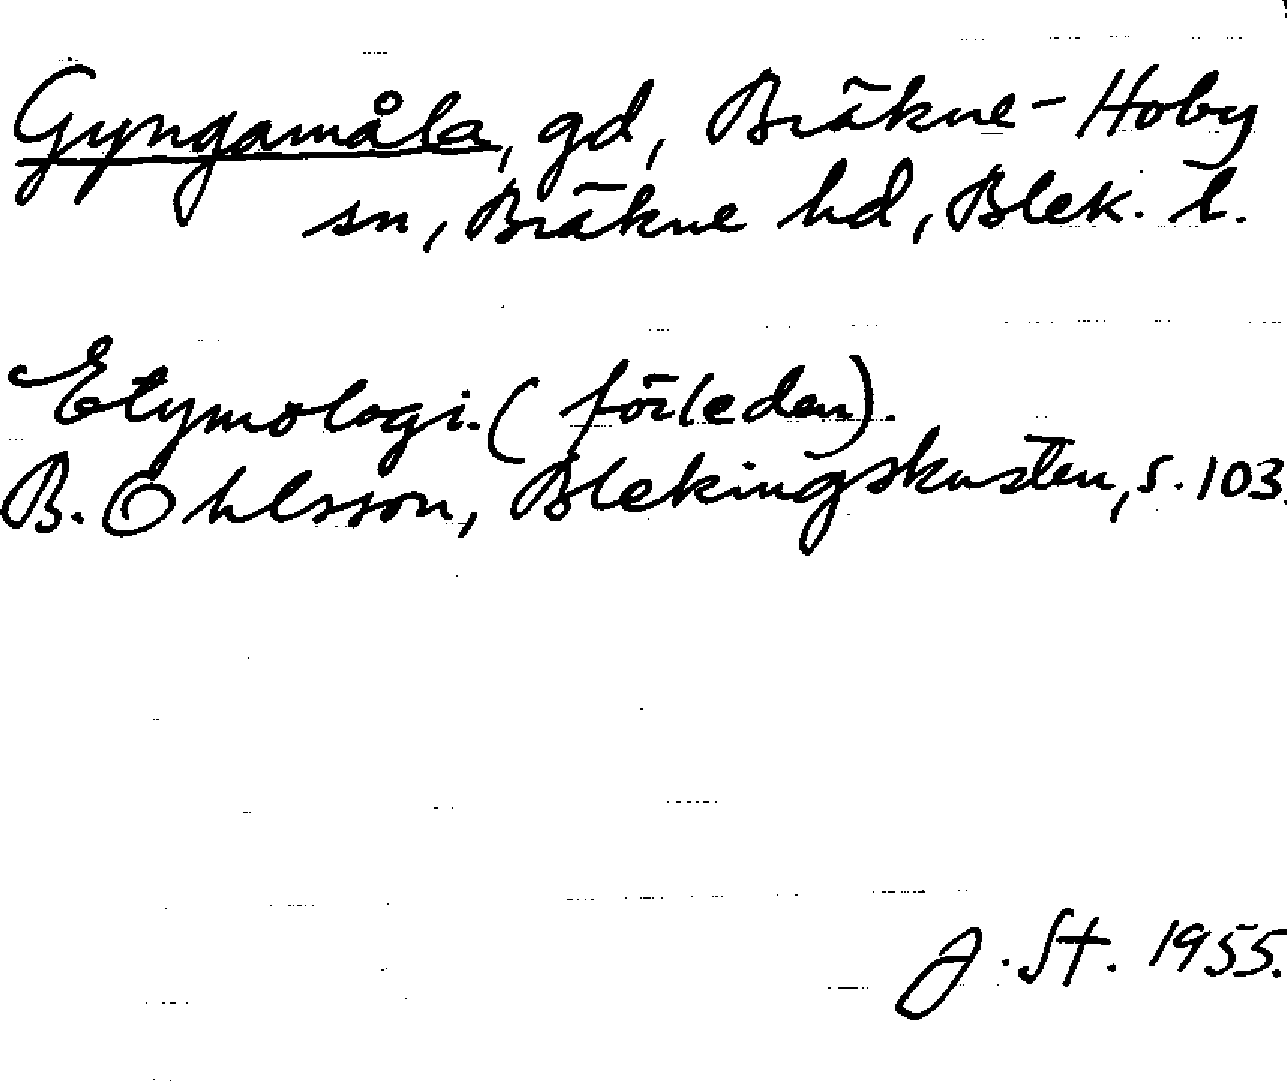 Gyngamåla, gd, Bräkne-Hoby
sn, Bräkne hd, Blek. l.
Etymologi. (förleden).
B. Ohlsson, Blekingskusten, s. 103.
J. St. 1955.